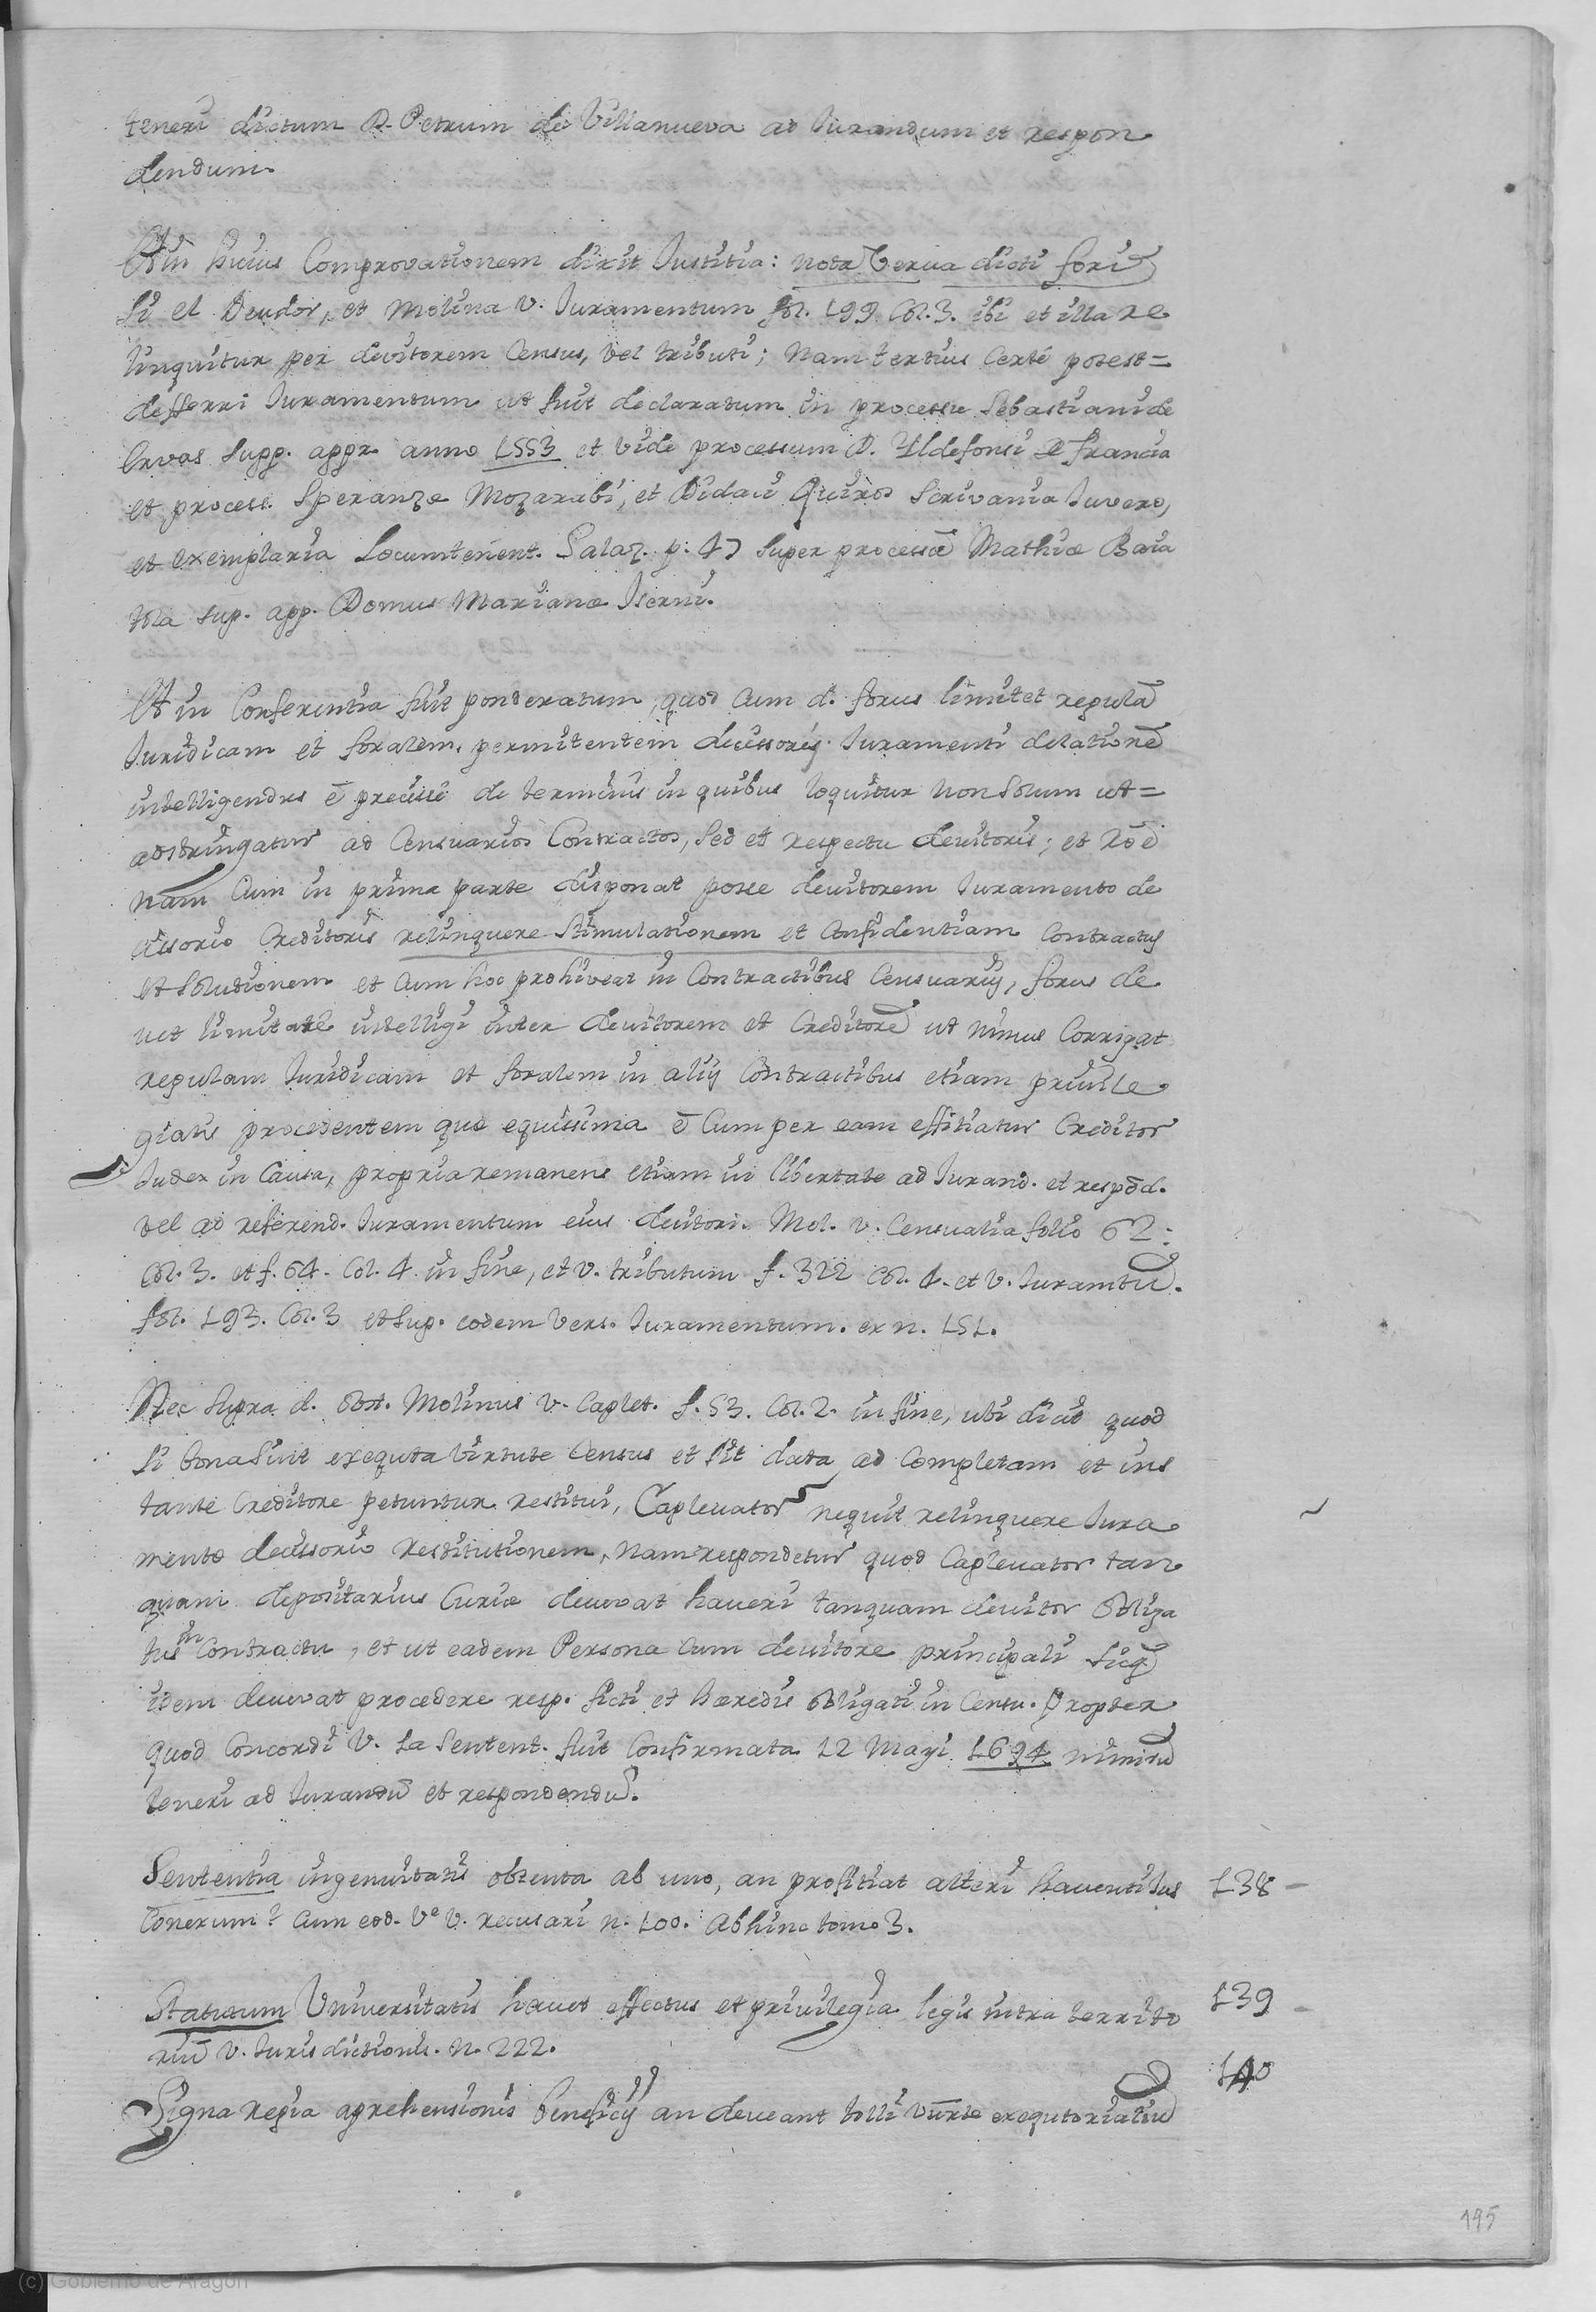 teneri dictum D. Petrum de Villanueva ad Jurandum et respon
dendum.
Et in huius Comprovationem dixit Justitia: nota Verva dicti fori
si el Deudor, et Molina v. Juramentum fol. 199. Col. 3. ibi et illa re
linquitur per devitorem Census, vel tributi; nam tertius Certé potest=
defferri Juramentum ut fuit declaratum in processu Sebastiani de
Ervas supp. appr. anno 1553 et vide processum D. Yldefonsi de francia
et process. Speranze Mozarabi, et Didaci Quiros Scrivania Juvero,
et exemplaria Locumtenent. Salaz. p: 47 super processu Mathiæ Baia
tola sup. app. Domus Marianæ Iserni.
Et in Conferentia fuit ponderatum, quod Cum d. forus limitet regulã
Juridicam et foralem, permitentem decissorij Juramenti delationẽ
intelligendus ẽ precissé de terminis in quibus loquitur non solum ut=
adstringatur ad Censuarios Contractos, sed et respectu devitoris; et Rõ ẽ
nam Cum in prima parte disponat posse devitorem Juramento de
cissorio Creditoris relinquere simulationem et Confidentiam Contractus
et solutionem et Cum hoc prohiveat in Contractibus Censuarijs, forus de
vet limitaté intelligi inter devitorem et Creditorẽ ut minus Corrigat
regulam Juridicam et foralem in alijs Contractibus etiam privile
giatis procedentem quæ equissima ẽ Cum per eam effitiatur Creditor
Judex in Causa, propria remanens etiam in libertate ad Jurand. et respõd.
vel ad referend. Juramentum eius devitori. Mol. v. Censualia folio 62:
Col. 3. et f. 64. Col. 4. in fine, et v. tributum f. 322 Col. 1. et v. Juramtũ.
fol. 193. Col. 3 et sup. eodem vers. Juramentum. ex n. 151.
Nec supra d. obst. Molinus v. Caplet. f. 53. Col. 2. in fine, ubi dicit quod
si bona sint exequta virtute Census et sit data ad Completam et ins
tante Creditore petuntur restitui, Caplevator nequit relinquere Jura
mento decissorio restitutionem, nam respondetur quod Caplevator tan
quam depositarius Curiæ devevat haveri tanquam devitor obliga
tus in Contractu, et ut eadem Persona Cum devitore principali sicq̃
idem devevat procedere resp. ficti et hæredis obligati in Censu. Propter
quod Concordi V. La Sentent. fuit Confirmata 12 Mayi 1694 nimirũ
teneri ad Jurandũ et respondendũ.
Sententia ingenuitatis obtenta ab uno, an profitiat alteri haventi Jus 138
Conexum? Cum eod. Vᵉ v. recusari n. 100. Abhinc tomo 3.
Statutum Universitatis havet effectus et privilegia legis intra territo 139
riũ v. Jurisdictionis. n. 222.
Signa regia aprehensionis beneficij an deveant tolli executorialiũ 140
195
(c) Gobierno de Aragón